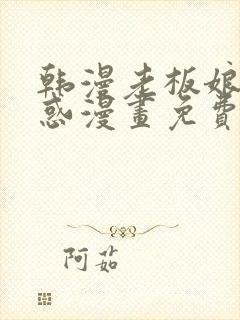 韩漫老板娘
惑漫畫免費
阿茹